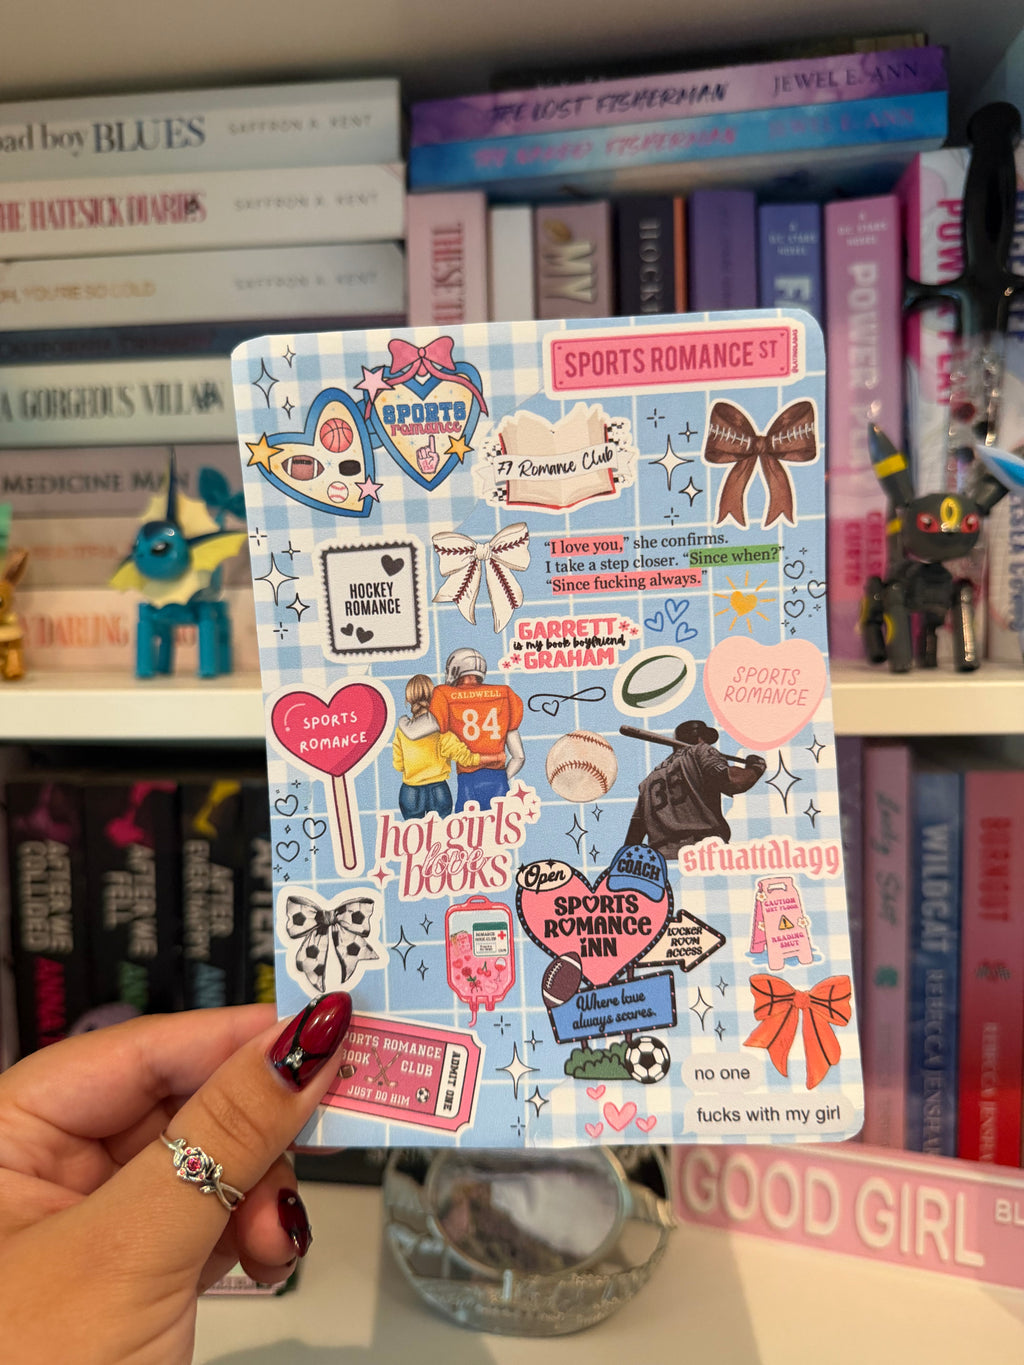 bad boy BLUES SAFFRON A. KENT
THE HATESICK DIARIES SAFFRON A. KENT
OH, YOU'RE SO COLD SAFFRON A. KENT
A GORGEOUS VILLAIN
MEDICINE MAN
MY DARLING
THE LOST FISHERMAN JEWEL E. ANN
THE NAKED FISHERMAN JEWEL E. ANN
THESE
MY
HOCK
POWER
SPORTS ROMANCE ST
SPORTS
romance
F1 Romance Club
HOCKEY
ROMANCE
“I love you,” she confirms.
I take a step closer. “Since when?”
“Since fucking always.”
GARRETT
is my book boyfriend
GRAHAM
SPORTS
ROMANCE
SPORTS
ROMANCE
CALDWELL
84
35
hot girls
love
books
stfuattdlagg
Open
COACH
SPORTS
ROMANCE
INN
LOCKER
ROOM
ACCESS
Where love
always scores.
CAUTION
WET FLOOR
READING
SMUT
SPORTS ROMANCE
BOOK CLUB
JUST DO HIM
ADMIT ONE
no one
fucks with my girl
WILDCAT REBECCA JENSHAK
BURNOUT REBECCA JENSHAK
GOOD GIRL BL